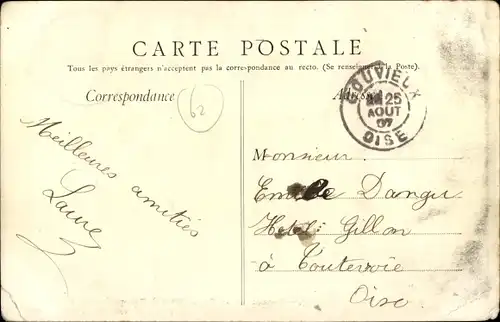 CARTE POSTALE
Tous les pays étrangers n'acceptent pas la correspondance au recto. (Se renseigner à la Poste).
Correspondance
62
Adresse
GOUVIEUX
25
AOUT
07
OISE
Meilleures amitiés
Laure
Monsieur
Emile Dangu
Hotel Gillon
à Toutevoie
Oise